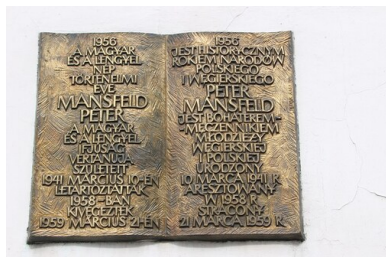 1956
A MAGYAR
ÉS A LENGYEL
NÉP
TÖRTÉNELMI
ÉVE
MANSFELD
PÉTER
A MAGYAR
ÉS A LENGYEL
IFJÚSÁG
VÉRTANÚJA
SZÜLETETT
1941 MÁRCIUS 10-ÉN
LETARTÓZTATTÁK
1958-BAN
KIVÉGEZTÉK
1959 MÁRCIUS 21-ÉN
1956
JEST HISTORYCZNYM
ROKIEM NARODÓW
POLSKIEGO
I WĘGIERSKIEGO
PÉTER
MANSFELD
JEST BOHATEREM-
MĘCZENNIKIEM
MŁODZIEŻY
WĘGIERSKIEJ
I POLSKIEJ
URODZONY
10 MARCA 1941 R
ARESZTOWANY
W 1958 R
STRACONY
21 MARCA 1959 R